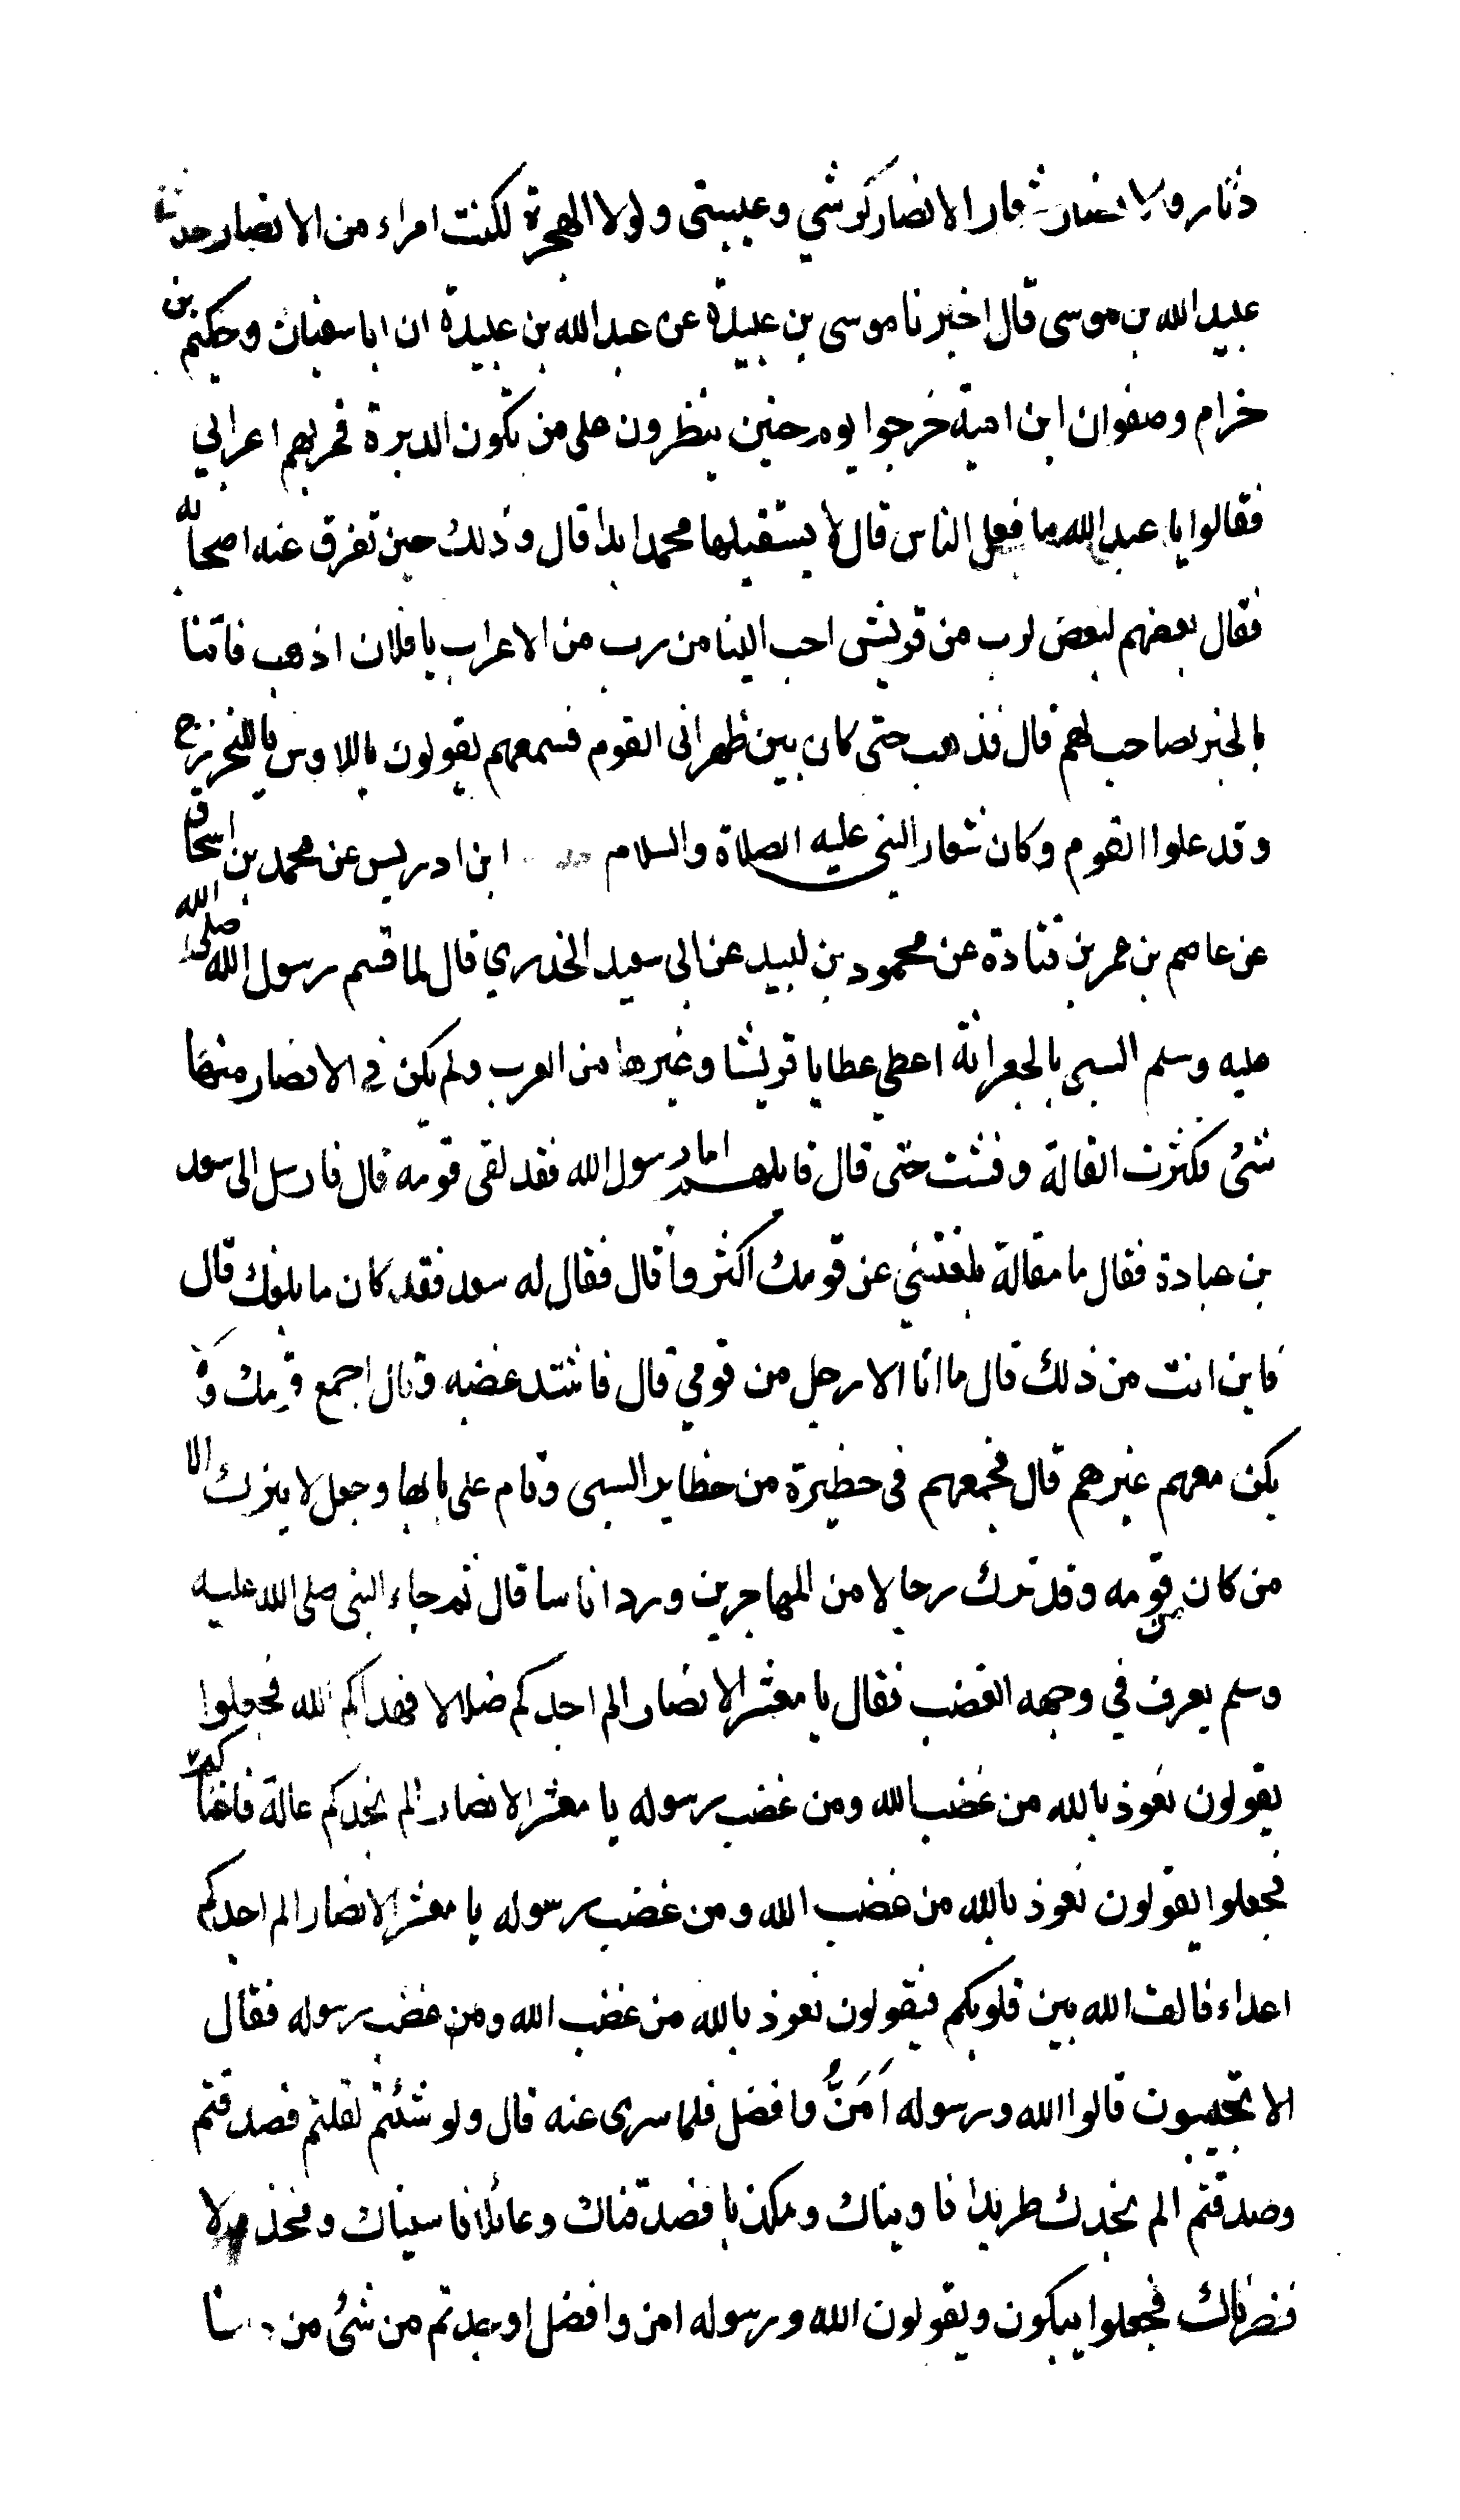 دثار والانصار شعار الانصار كرشي وعيبتي ولولا الهجرة لكنت امراء من الانصار حدثنا
عبيد الله بن موسى قال اخبرنا موسى بن عبيدة عن عبد الله بن عبيدة ان ابا سفيان وحكيم بن
حزام وصفوان ابن امية خرجوا يوم حنين ينظرون على من تكون الدبرة فمر بهم اعرابي
فقالوا يا عبد الله ما فعل الناس قال لا يستقبلها محمد ابدا قال وذلك حين تفرق عنه اصحابه
فقال بعضهم لبعض لرب من قريش احب الينا من رب من الاعراب يا فلان اذهب فاتنا
بالخبر لصاحب لهم قال فذهب حتى كان بين ظهراني القوم فسمعهم يقولون يا للاوس يا للخزرج
وقد علوا القوم وكان شعار النبي عليه الصلاة والسلام ابن ادريس عن محمد بن اسحاق
عن عاصم بن عمر بن قتادة عن محمود بن لبيد عن ابي سعيد الخدري قال لما قسم رسول الله صلى الله
عليه وسلم السبي بالجعرانة اعطى عطايا قريشا وغيرها من العرب ولم يكن في الانصار منها
شئ فكثرت القالة وفشت حتى قال قايلهم اما رسول الله فقد لقى قومه قال فارسل الى سعد
بن عبادة فقال ما مقالة بلغتني عن قومك اكثروا قال فقال له سعد فقد كان ما بلغك قال
فاين انت من ذلك قال ما انا الا رجل من قومي قال فاشتد غضبه وقال اجمع قومك و
يكن معهم غيرهم قال فجمعهم في حظيرة من حظاير السبى وقام على بابها وجعل لا يترك الا
من كان من قومه وقد ترك رجالا من المهاجرين ورد اناسا قال ثم جاء النبي صلى الله عليه
وسلم يعرف في وجهه الغضب فقال يا معشر الانصار الم اجدكم ضلالا فهداكم الله فجعلوا
يقولون نعوذ بالله من غضب الله ومن غضب رسوله يا معشر الانصار الم نجدكم عالة فاغناكم
فجعلوا يقولون نعوذ بالله من غضب الله ومن غضب رسوله يا معشر الانصار الم اجدكم
اعداء فالف الله بين قلوبكم فيقولون نعوذ بالله من غضب الله ومن غضب رسوله فقال
الا تجيبون قالوا الله ورسوله اَمَنُّ وافضل فلما سرى عنه قال ولو شئتم لقلتم فصدقتم
وصدقتم الم نجدك طريدا فاويناك ومكذبا فصدقناك وعائلا فاسيناك ومخذولا
فنصرناك فجعلوا يبكون ويقولون الله ورسوله امن وافضل اوجدتم من شئ من دنيا